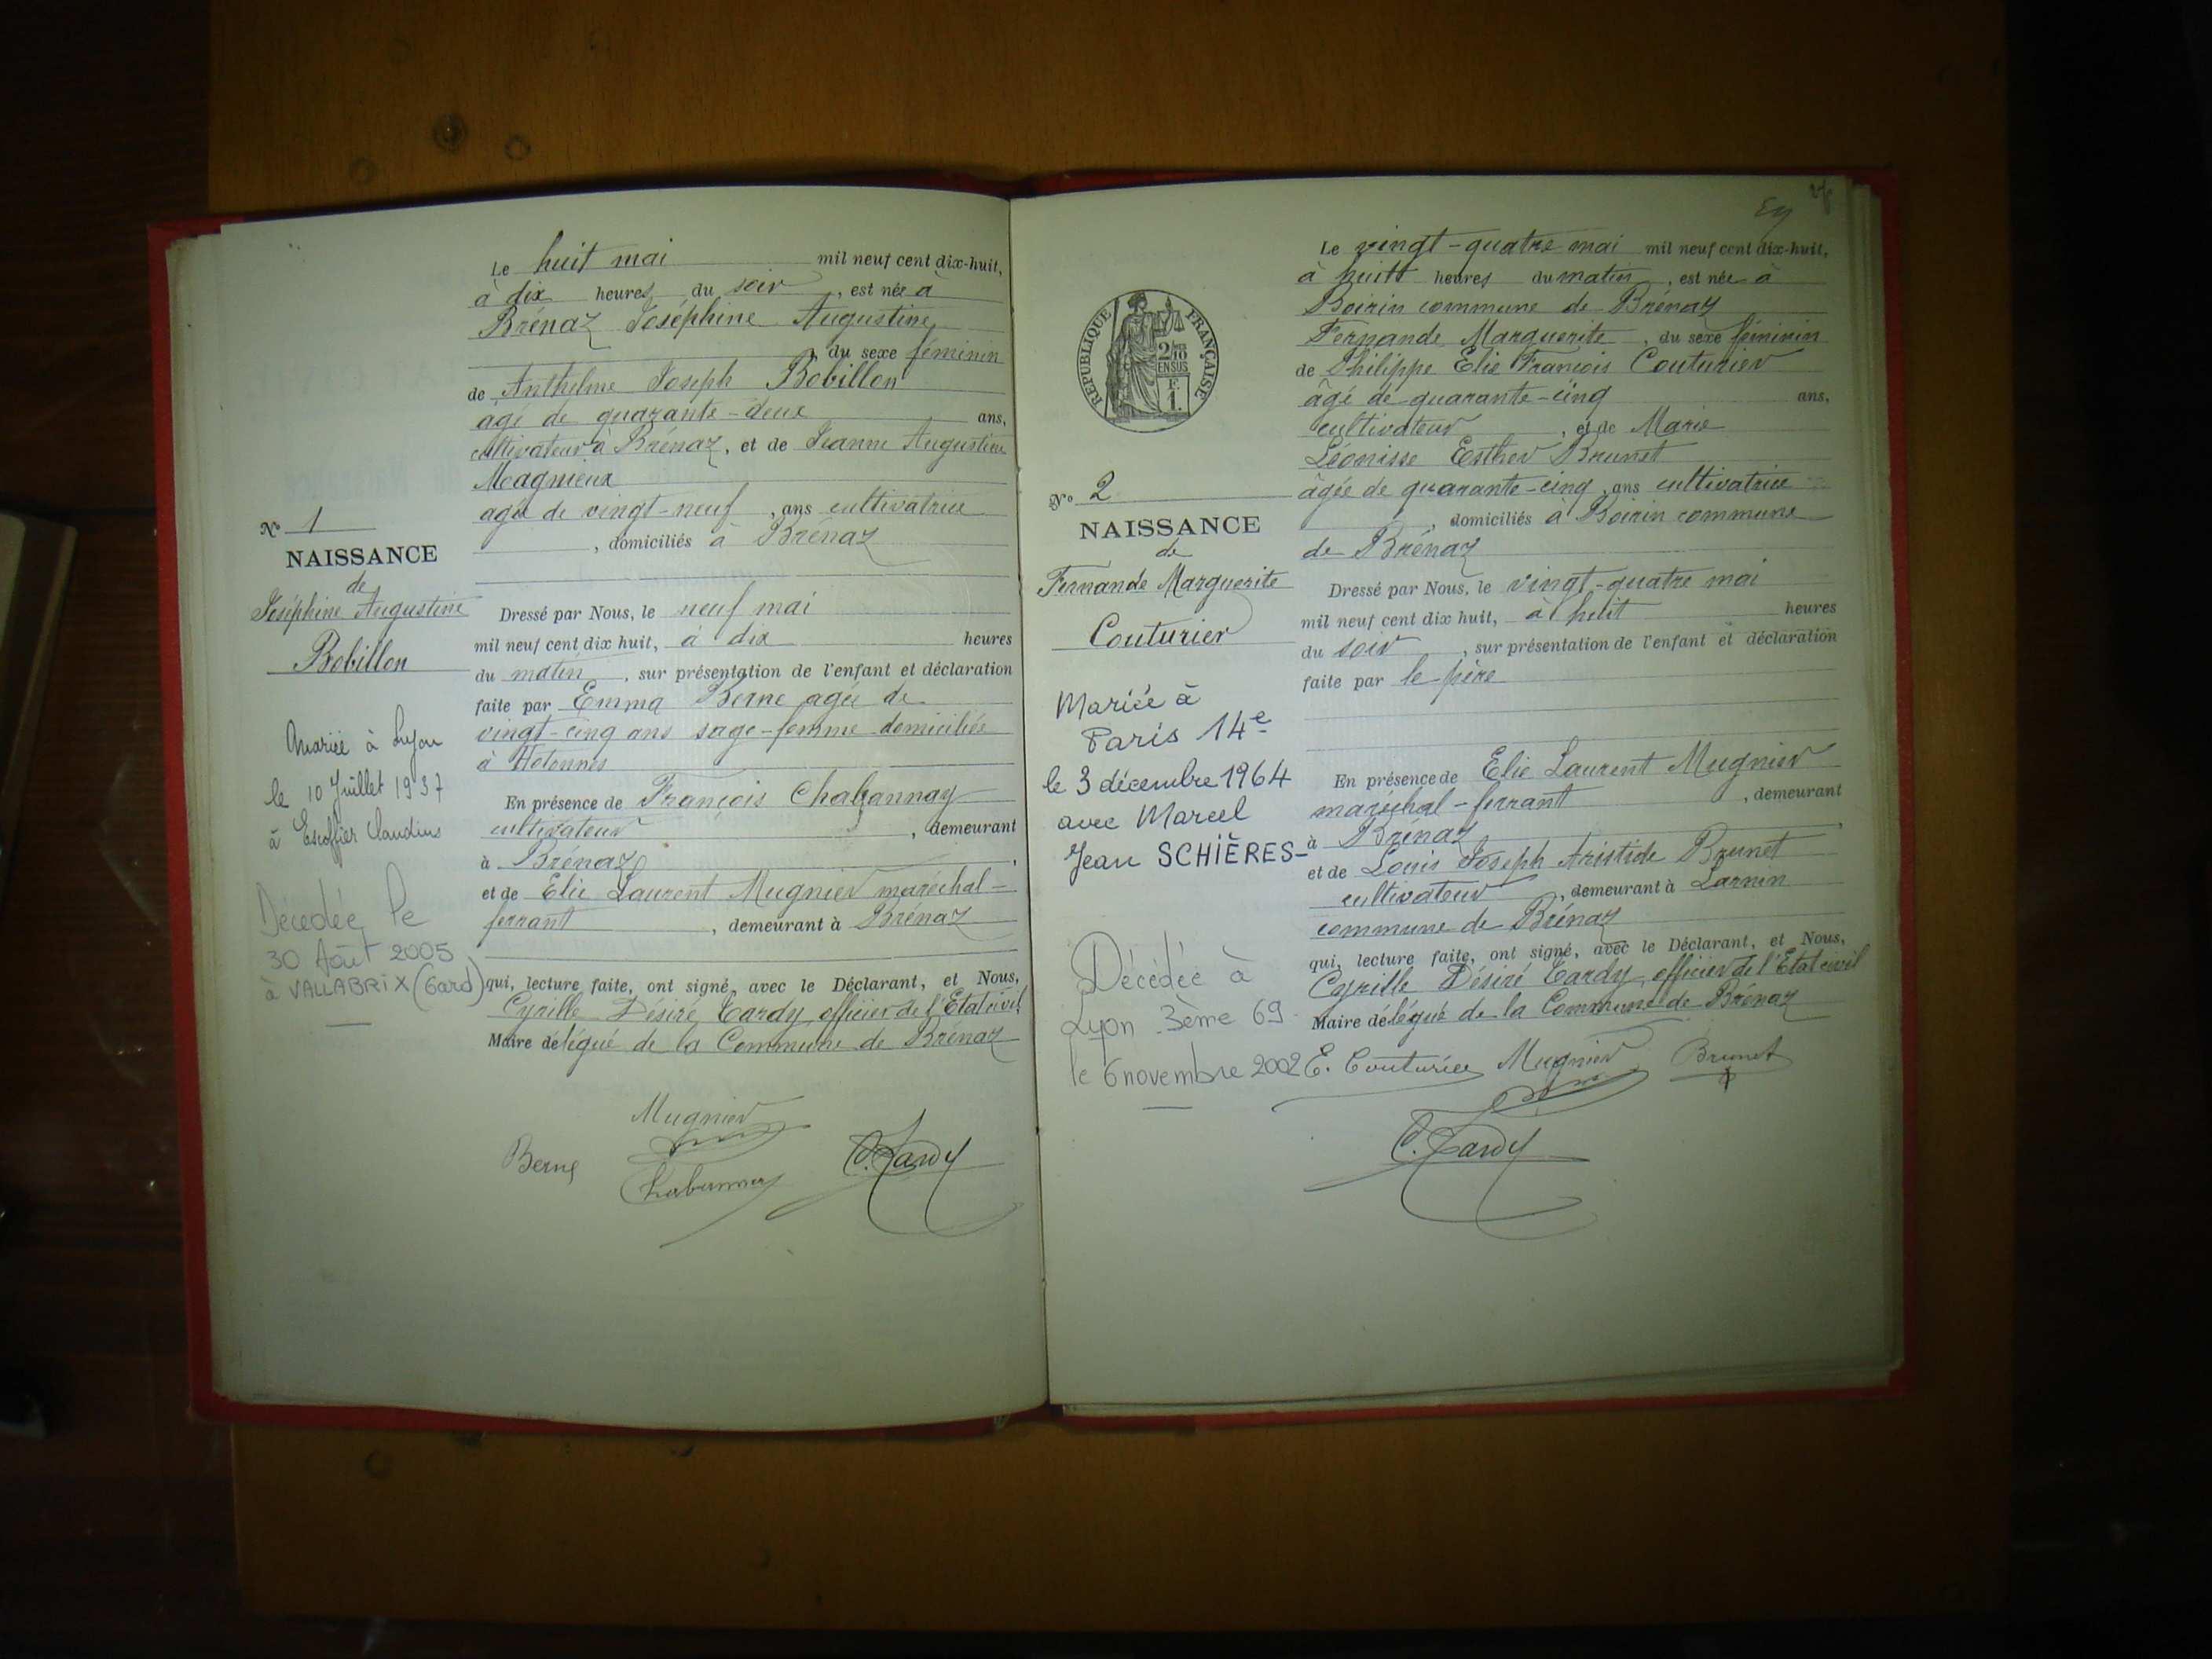 Nº 1
NAISSANCE
de
Joséphine Augustine
Bobillon
Mariée à Lyon
le 10 Juillet 1937
à Escoffier Claudius
Décédée le
30 Août 2005
à VALLABRIX (Gard)
Le huit mai mil neuf cent dix-huit,
à dix heures du soir, est née à
Brénaz Joséphine Augustine
, du sexe féminin
de Anthelme Joseph Bobillon
âgé de quarante-deux ans,
cultivateur à Brénaz, et de Jeanne Augustine
Magnieux
âgée de vingt-neuf, ans cultivatrice
, domiciliés à Brénaz
Dressé par Nous, le neuf mai
mil neuf cent dix huit, à dix heures
du matin, sur présentation de l'enfant et déclaration
faite par Emma Berne agée de
vingt-cinq ans sage-femme domiciliée
à Hotonnes
En présence de François Chabannay
cultivateur, demeurant
à Brénaz,
et de Elie Laurent Mugnier maréchal-
ferrant, demeurant à Brénaz
qui, lecture faite, ont signé, avec le Déclarant, et Nous,
Cyrille Désiré Tardy, officier de l'Etat civil
Maire délégué de la Commune de Brénaz
Mugnier
Berne
Chabannay
C. Tardy
RÉPUBLIQUE FRANÇAISE
2/10
EN SUS
F.
1.
Nº 2
NAISSANCE
de
Fernande Marguerite
Couturier
Mariée à
Paris 14e
le 3 décembre 1964
avec Marcel
Jean SCHIÈRES-
Décédée à
Lyon 3ème 69
le 6 novembre 2002
Le vingt-quatre mai mil neuf cent dix-huit,
à huit heures du matin, est née à
Boirin commune de Brénaz
Fernande Marguerite, du sexe féminin
de Philippe Elie François Couturier
âgé de quarante-cinq ans,
cultivateur, et de Marie
Léonisse Esther Brunet
âgée de quarante-cinq, ans cultivatrice
, domiciliés à Boirin commune
de Brénaz
Dressé par Nous, le vingt-quatre mai
mil neuf cent dix huit, à huit heures
du soir, sur présentation de l'enfant et déclaration
faite par le père
En présence de Elie Laurent Mugnier
maréchal-ferrant, demeurant
à Brénaz,
et de Louis Joseph Aristide Brunet
cultivateur, demeurant à Larnin
commune de Brénaz
qui, lecture faite, ont signé, avec le Déclarant, et Nous,
Cyrille Désiré Tardy, officier de l'Etat civil
Maire délégué de la Commune de Brénaz
E. Couturier Mugnier Brunet
C. Tardy